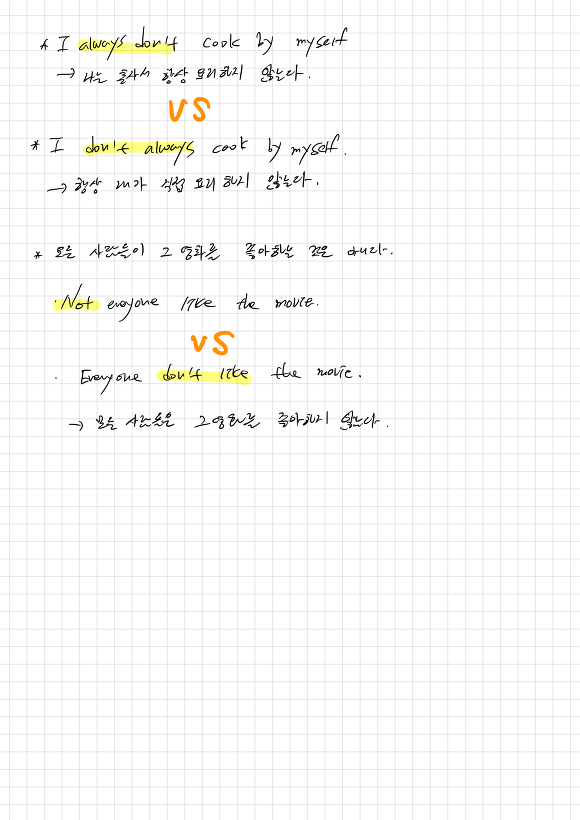 * I always don't cook by myself
→ 나는 혼자서 항상 요리하지 않는다.
VS
* I don't always cook by myself.
→ 항상 내가 직접 요리하지 않는다.
* 모든 사람들이 그 영화를 좋아하는 것은 아니다.
· Not everyone like the movie.
VS
· Everyone don't like the movie.
→ 모든 사람들은 그 영화를 좋아하지 않는다.